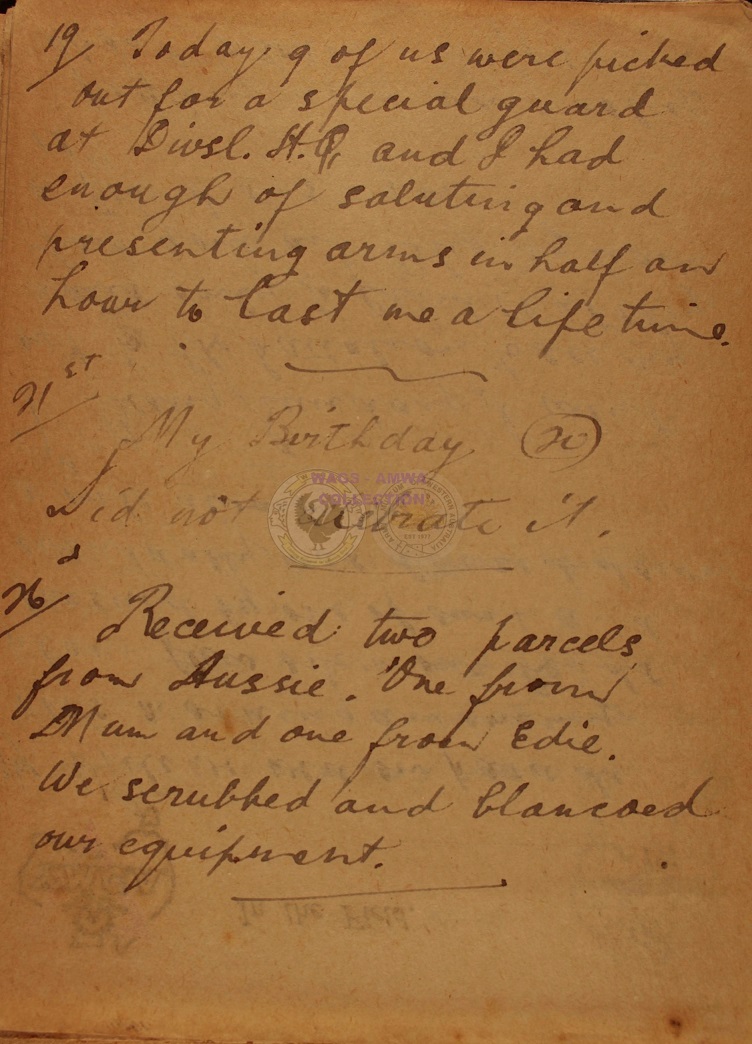 19/ Today 9 of us were picked
out for a special guard
at Divsl. H.Q, and I had
enough of saluting and
presenting arms in half an
hour to last me a life time.
21st
My Birthday (20)
Did not celebrate it.
Received two parcels
from Aussie. One from
Mum and one from Edie.
We scrubbed and blancoed
our equipment.
WAGS - AMWA
COLLECTION